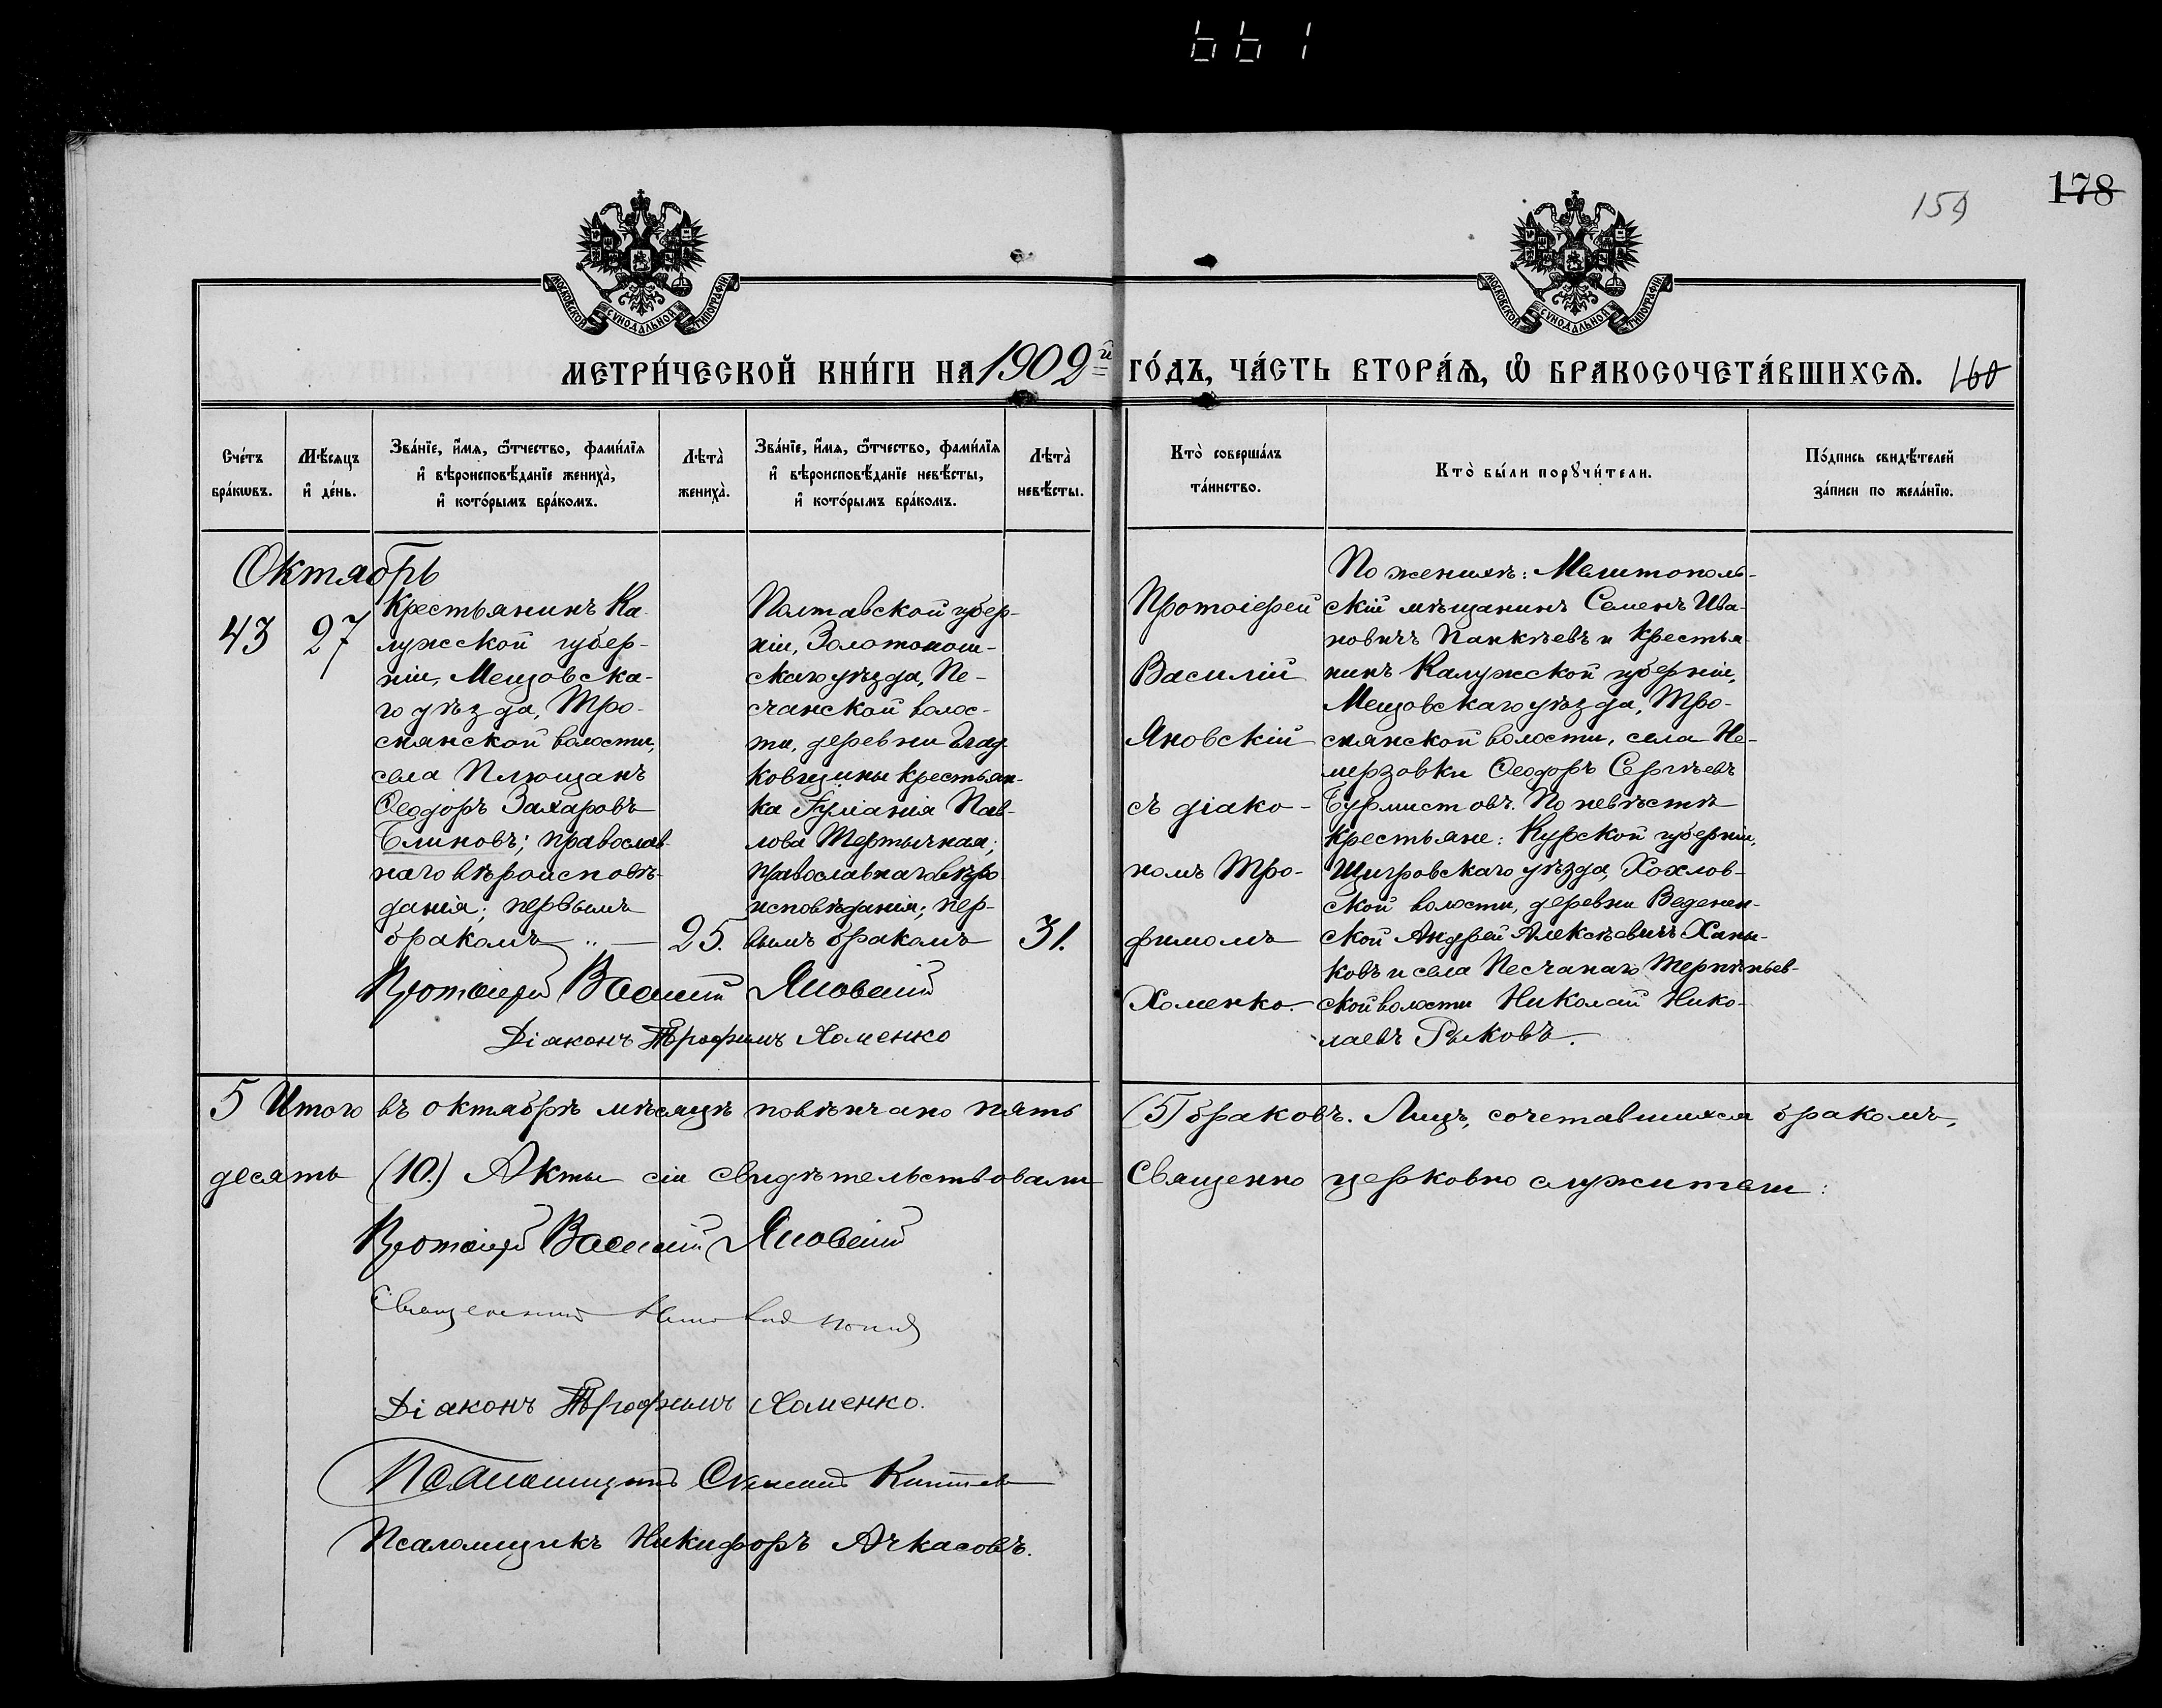 661
159
178
МОСКОВСКОЙ СУНОДАЛЬНОЙ ТИПОГРАФІИ
МОСКОВСКОЙ СУНОДАЛЬНОЙ ТИПОГРАФІИ
МЕТРИ́ЧЕСКОЙ КНИ́ГИ НА 1909й ГО́ДЪ, ЧА́СТЬ ВТОРА́Ѧ, Ѽ БРАКОСОЧЕТА́ВШИХСѦ. 160
Сче́тъ
бра́кѡвъ.
Мѣ́сѧцъ
и҆ де́нь.
Зва́нїе, и҆́мѧ, ѻ҆́тчество, фами́лїѧ
и҆ вѣроисповѣ́данїе жениха̀,
и҆ кото́рымъ бра́комъ.
Лѣта̀
жениха̀.
Зва́нїе, и҆́мѧ, ѻ҆́тчество, фами́лїѧ
и҆ вѣроисповѣ́данїе невѣ́сты,
и҆ кото́рымъ бра́комъ.
Лѣта̀
невѣ́сты.
Кто̀ соверша́лъ
та́инство.
Кто̀ бы́ли порꙋчи́тели.
По́дпись свидѣ́телей
за́писи по жела́нїю.
Октябрь
43
27
Крестьянинъ Ка-
лужской губер-
ніи, Мещовска-
го уѣзда, Тро-
снянской волости,
села Плющанъ
Ѳеодоръ Захаровъ
Блиновъ; православ-
наго вѣроисповѣ-
данія; первымъ
бракомъ
25.
Полтавской губер-
ніи, Золотонош-
скаго уѣзда, Пе-
счанской волос-
ти, деревни Глад-
ковщины крестьян-
ка Іуліанія Пав-
лова Тертычная;
православнаго вѣро
исповѣданія; пер-
вымъ бракомъ
31.
Протоіерей
Василій
Яновскій
съ діако-
номъ Тро-
фимомъ
Хоменко.
По женихѣ: Мелитополь-
скій мѣщанинъ Семенъ Ива-
новичъ Панкѣевъ и крестья-
нинъ Калужской губерніи,
Мещовскаго уѣзда, Тро-
снянской волости, села Не-
мерзовки Ѳеодоръ Сергѣевъ
Бурмистовъ. По невѣстѣ
крестьяне: Курской губерніи,
Щигровскаго уѣзда, Хохлов-
ской волости, деревни Веденен-
ской Андрей Алексѣевичъ Ханы-
ковъ и села Песчанаго
ской волости Николай Нико-
лаевъ Рыковъ.
Протоіерей Василій Яновскій
Діаконъ Трофимъ Хоменко
5 Итого въ октябрѣ мѣсяцѣ повѣнчано пять (5) браковъ. Лицъ, сочетавшихся бракомъ,
десять (10.) Акты сіи свидѣтельствовали Священно церковно служители:
Протоіерей Василій Яновскій
Священникъ
Діаконъ Трофимъ Хоменко.
Псаломщикъ
Псаломщикъ Никифоръ Ачкасовъ.